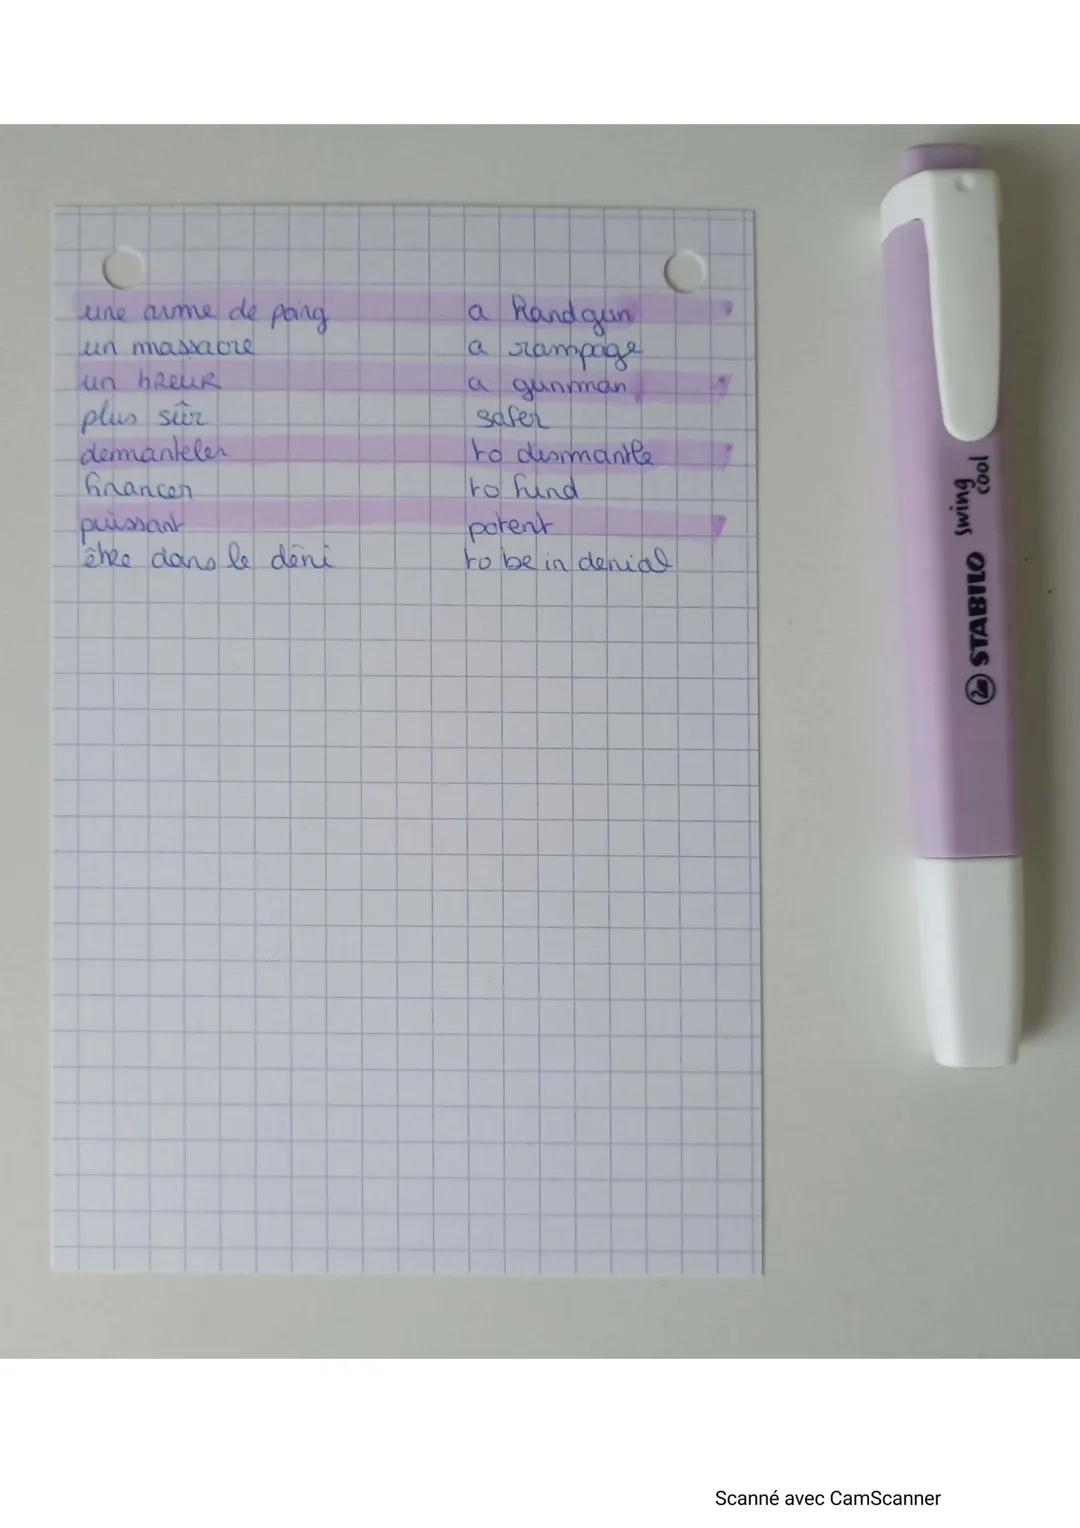 une arme de poing a handgun
un massacre a rampage
un tireur a gunman
plus sûr safer
demanteler to dismantle
financer to fund
puissant potent
être dans le déni to be in denial
STABILO swing cool
Scanné avec CamScanner